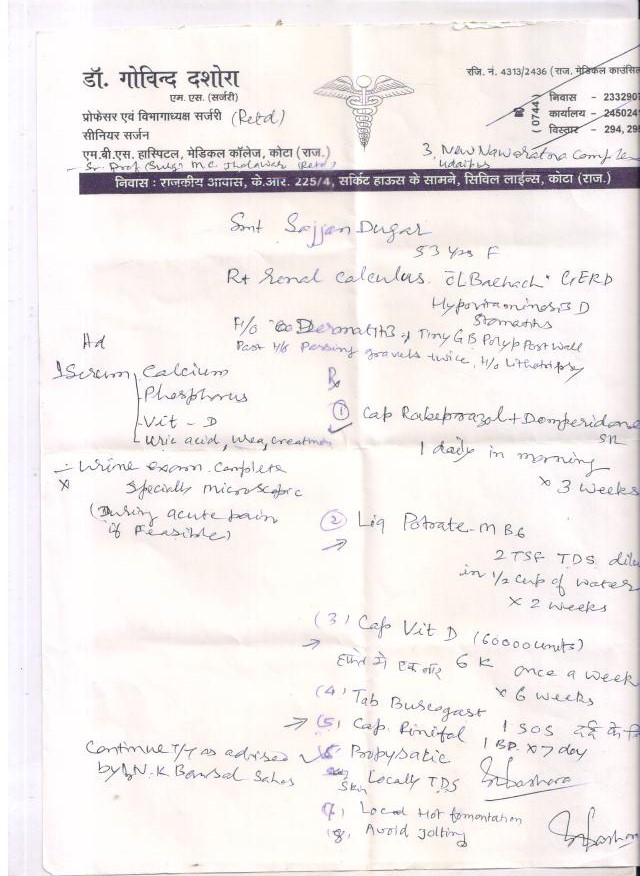 डॉ. गोविन्द दशोरा
एम. एस. (सर्जरी)
प्रोफेसर एवं विभागाध्यक्ष सर्जरी (Retd)
सीनियर सर्जन
एम.बी.एस. हास्पिटल, मेडिकल कॉलेज, कोटा (राज.)
Sr. Prof (Surg) M.C. Jhalawar (Retd)
रजि. नं. 4313/2436 (राज. मेडिकल काउंसिल
(0744)
निवास - 2332907
कार्यालय - 245024
विस्तार - 294, 295
3, New Navaratna Comple
Udaipur
निवास : राजकीय आवास, के.आर. 225/4, सर्किट हाऊस के सामने, सिविल लाईन्स, कोटा (राज.)
Smt Sajjan Dugar
53 yrs F
Rt renal calculus. c̄ GERD
Hypovitaminosis D
Stomatitis
H/o Tiny GB Polyp Post wall
Past H/o Passing gravels twice, H/o Lithotripsy
Ad
Serum Calcium
Phosphorus
Vit - D
Uric acid, urea, creatinin
Urine exam. complete
specially microscopic
(During acute pain
if feasible)
Rx
(1) Cap Rabeprazol + Domperidone
SR
1 daily in morning
x 3 weeks
(2) Liq Potrate-M B6
2 TSF TDS dilu
in 1/2 cup of water
x 2 weeks
(3) Cap Vit D (60000 units)
हफ्ते में एक बार 6 K once a week
x 6 weeks
(4) Tab Buscogast
1 SOS दर्द के
(5) Cap. Rinifol
1 BD x 7 day
(6) Propysalic
Skin Locally TDS
(7) Local Hot fomentation
(8) Avoid jolting
Continue T/t as advised
by Dr N.K Bansal Saheb